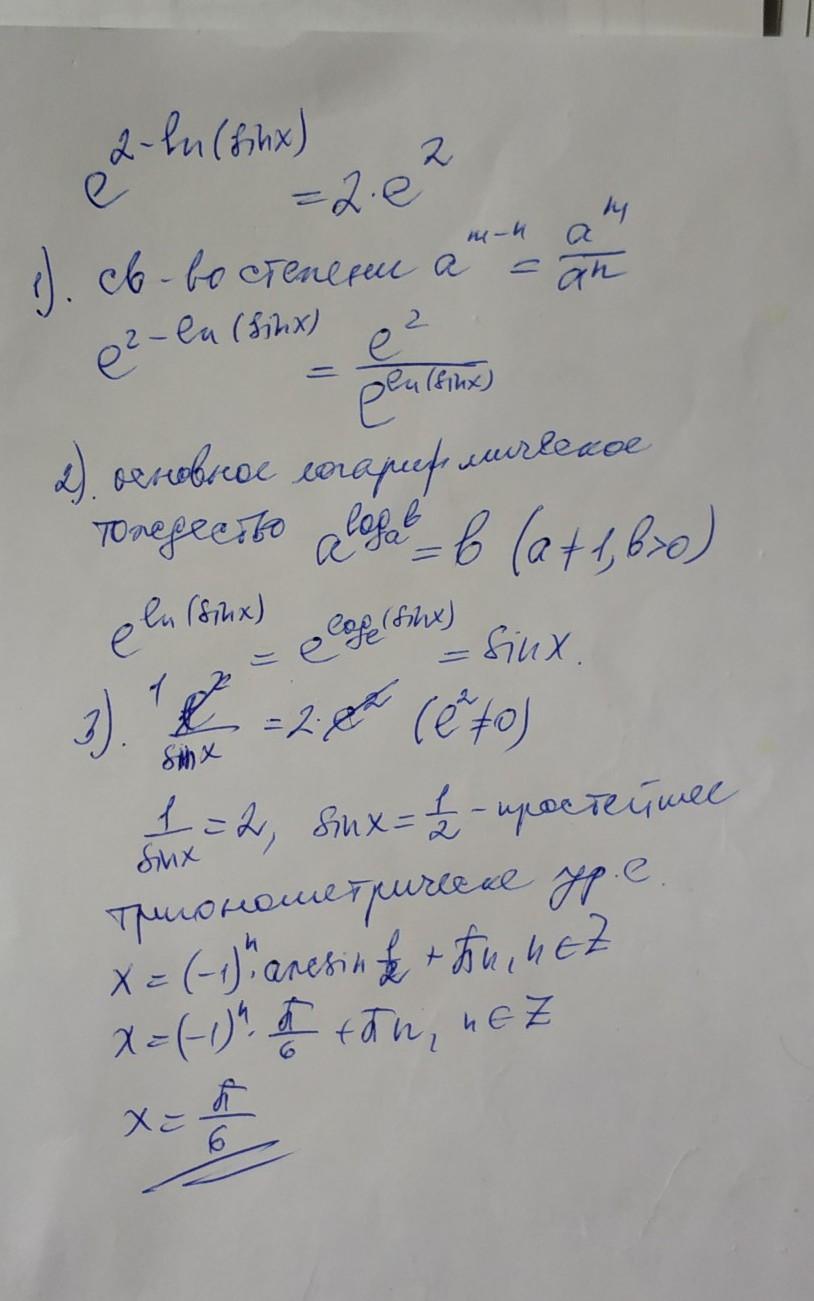 e^{2-ln(sinx)} = 2·e^2
1). св-во степени a^{m-n} = a^m/a^n
e^{2-ln(sinx)} = e^2/e^{ln(sinx)}
2). основное логарифмическое
тождество a^{log_a b} = b (a≠1, b>0)
e^{ln(sinx)} = e^{log_e(sinx)} = sinx.
3). 1 e^2/sinx = 2·e^2 (e^2≠0)
1/sinx = 2, sinx = 1/2 - простейшее
тригонометрическе ур.е.
x = (-1)^n·arcsin 1/2 + πn, n∈Z
x = (-1)^n·π/6 + πn, n∈Z
x = π/6